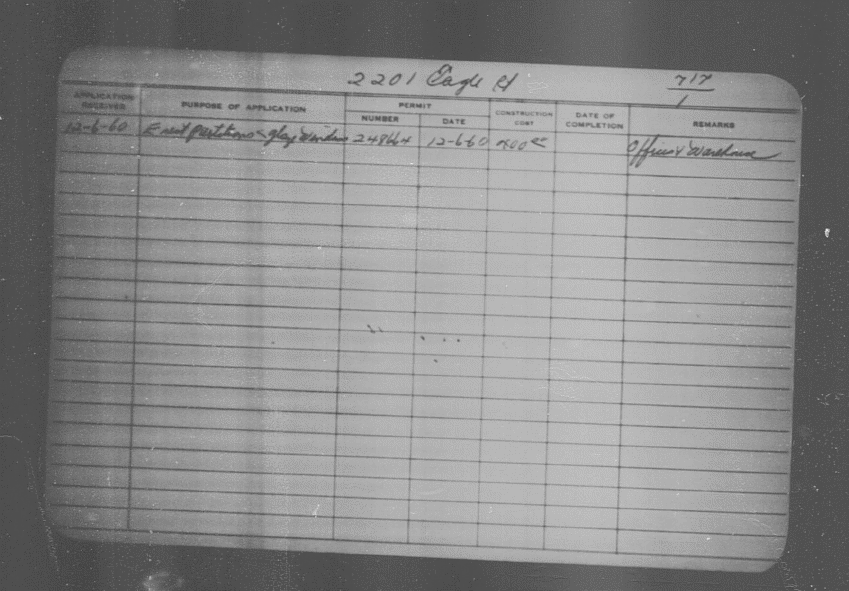 2201 Eagle St 717
1
APPLICATION RECEIVED PURPOSE OF APPLICATION PERMIT CONSTRUCTION COST DATE OF COMPLETION REMARKS
NUMBER DATE
12-6-60 Erect partitions & glaze windows 248664 12-6-60 Offices & Warehouse